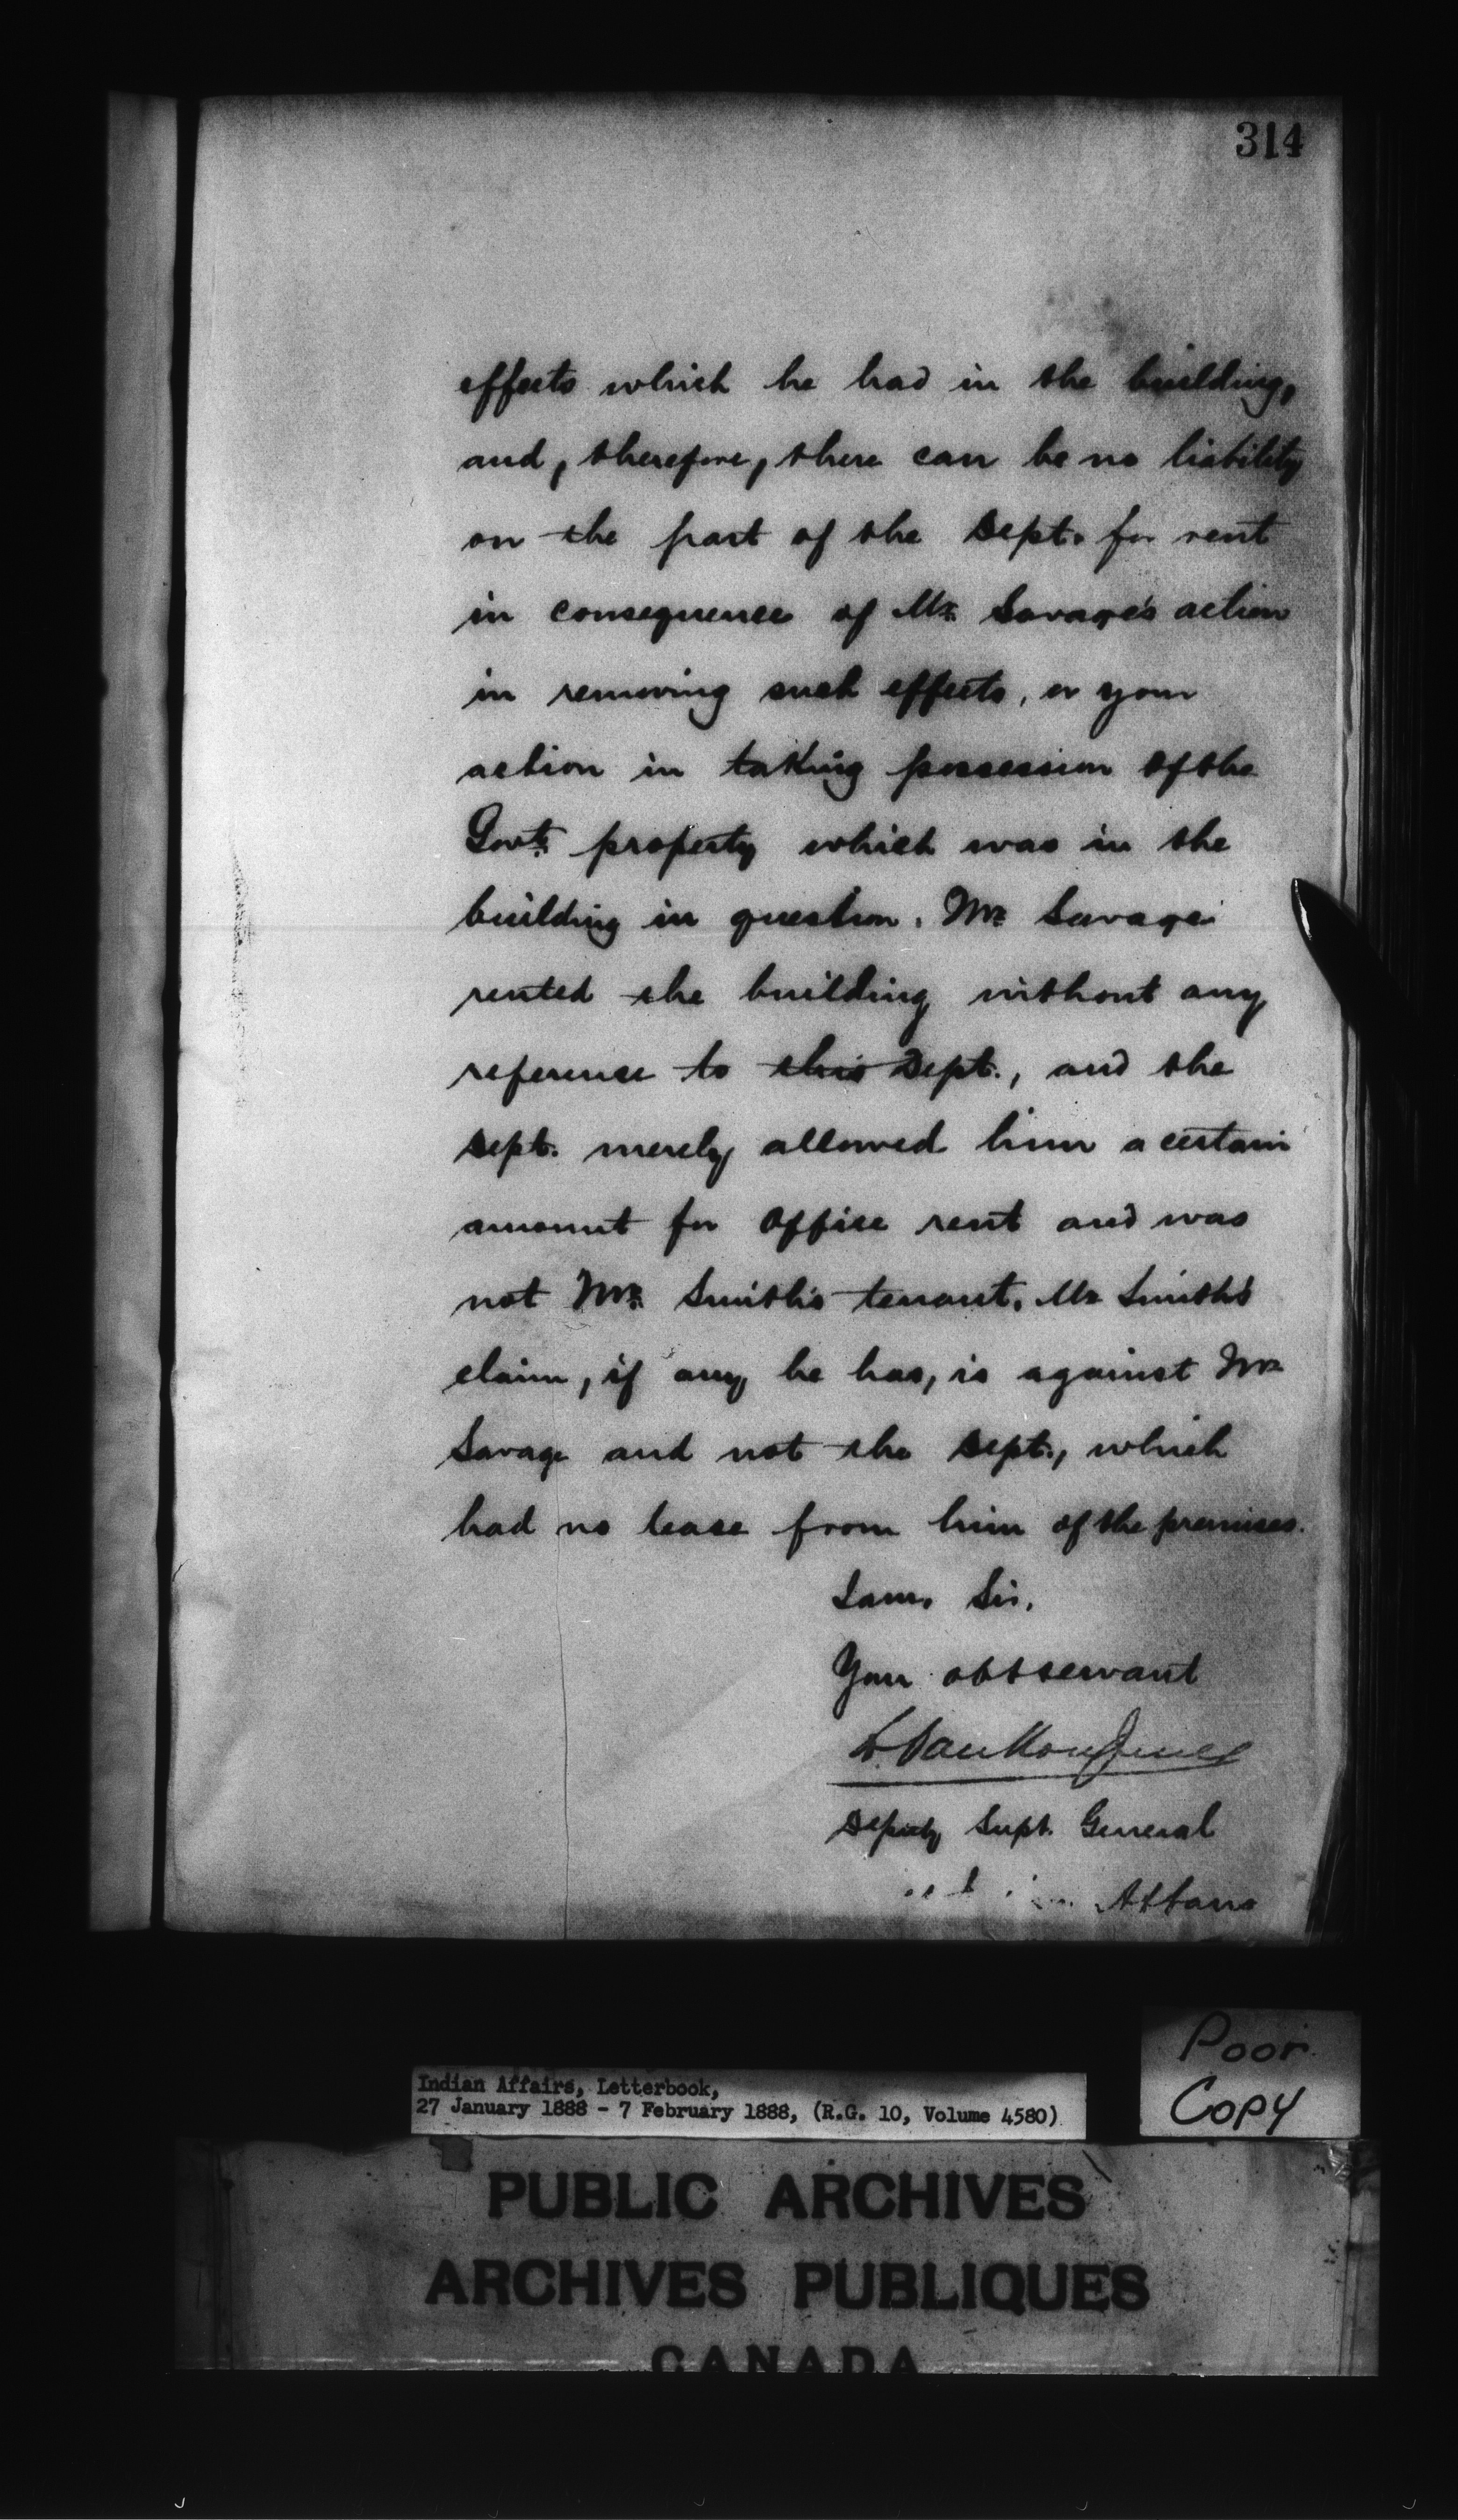 314
effects which he had in the building,
and, therefore, there can be no liability
on the part of the Dept. for rent
in consequence of Mr. Savage's action
in removing such effects, or your
action in taking possession of the
Govt. property which was in the
building in question. Mr. Savage
rented the building without any
reference to this Dept., and the
Dept. merely allowed him a certain
amount for office rent and was
not Mr. Smith's tenant. Mr Smith's
claim, if any he has, is against Mr
Savage and not the Dept., which
had no lease from him of the premises.
I am, Sir,
Your obt servant
L. VanKoughnet
Deputy Supt. General
Affairs
Poor
Copy
Indian Affairs, Letterbook,
27 January 1888 - 7 February 1888, (R.G. 10, Volume 4580)
PUBLIC ARCHIVES
ARCHIVES PUBLIQUES
CANADA